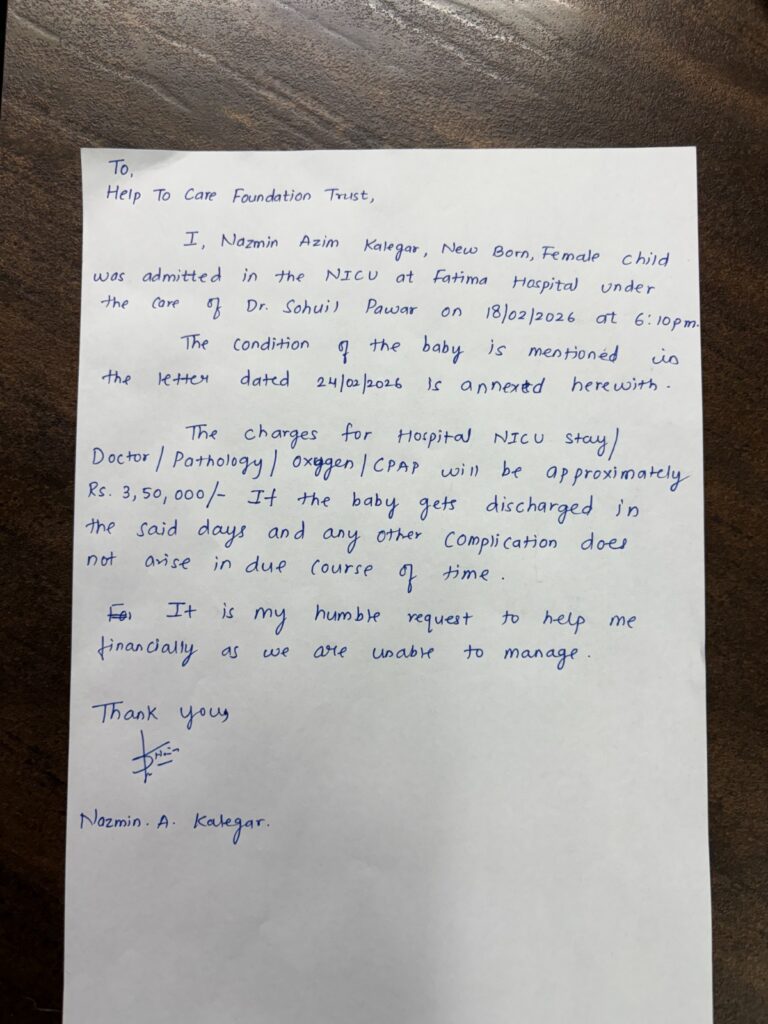 To,
Help To Care Foundation Trust,
I, Nazmin Azim Kalegar, New Born, Female child
was admitted in the NICU at Fatima Hospital under
the care of Dr. Sohuil Pawar on 18/02/2026 at 6:10pm.
The condition of the baby is mentioned in
the letter dated 24/02/2026 is annexed herewith.
The charges for Hospital NICU stay/
Doctor/Pathology/Oxygen/CPAP will be approximately
Rs. 3,50,000/- If the baby gets discharged in
the said days and any other complication does
not arise in due course of time.
It is my humble request to help me
financially as we are unable to manage.
Thank you,
Nazmin. A. Kalegar.